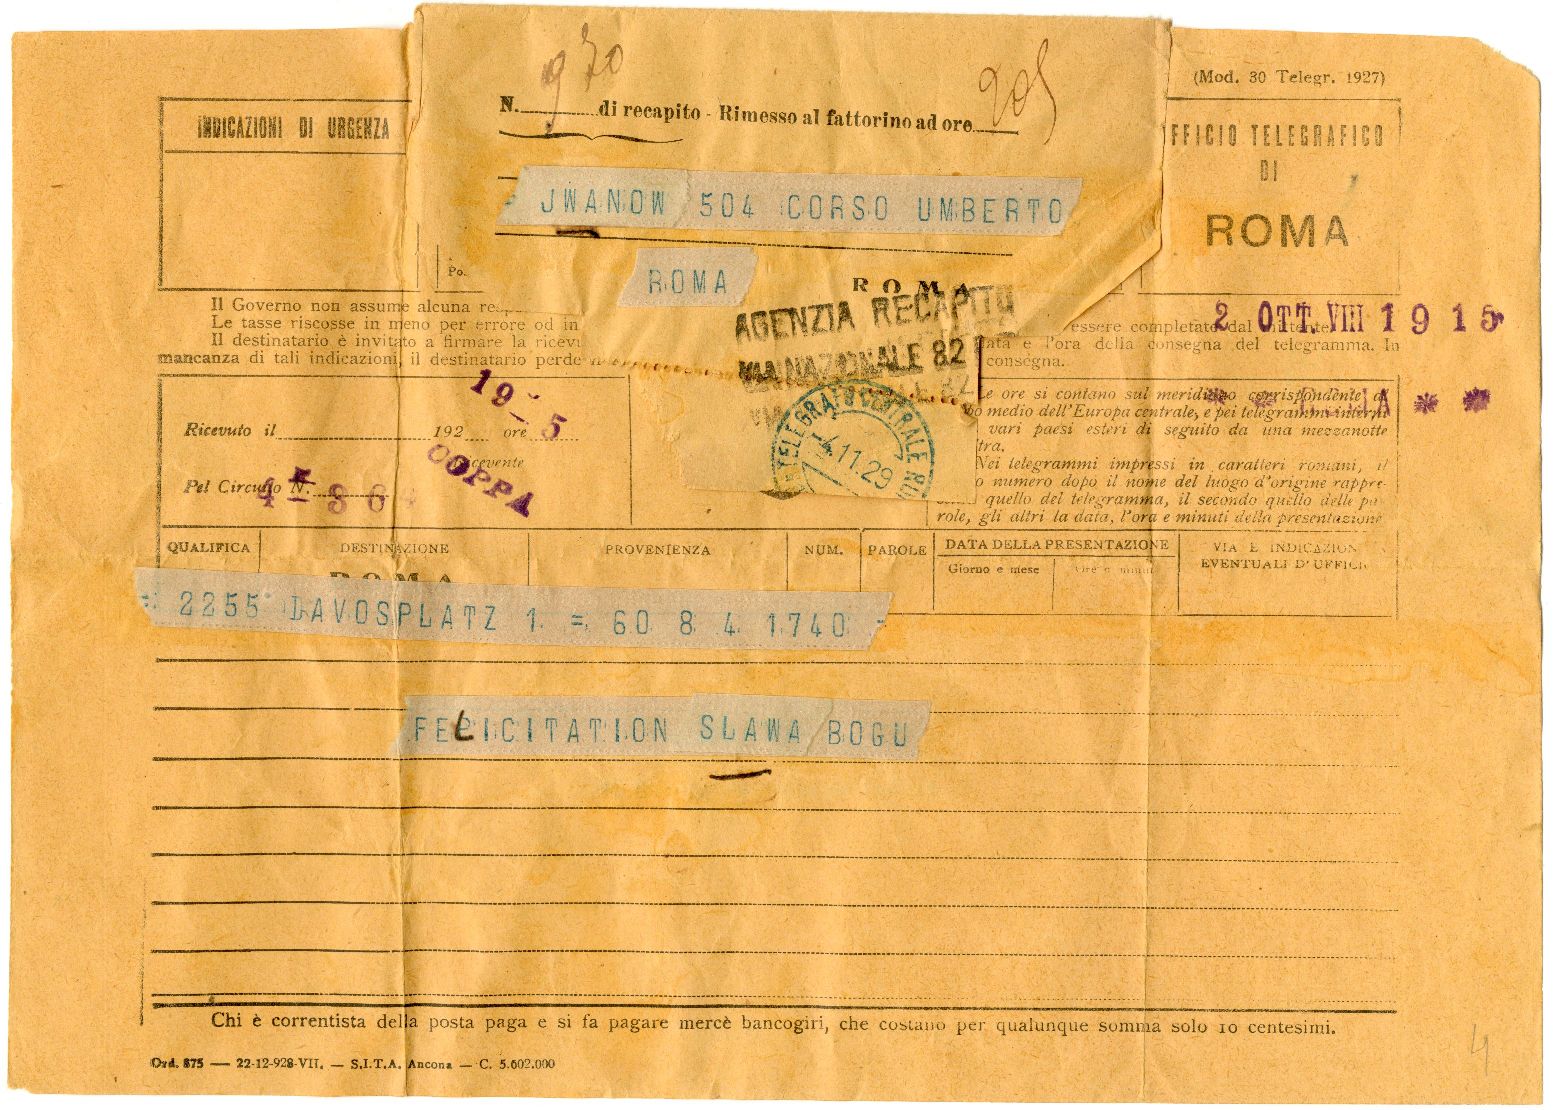 930
205
(Mod. 30 Telegr. 1927)
N. di recapito - Rimesso al fattorino ad ore
INDICAZIONI DI URGENZA
FFICIO TELEGRAFICO
DI
ROMA
= JWANOW 504 CORSO UMBERTO
ROMA
ROMA
Po.
AGENZIA RECAPITO
VIA NAZIONALE 82
LE 82
Il Governo non assume alcuna
Le tasse riscosse in meno per errore od in
Il destinatario è invitato a firmare la ricevu
mancanza di tali indicazioni, il destinatario perde
essere completato dal
ata e l'ora della consegna del telegramma. In
consegna.
2 OTT. VIII 1915
19 5
Ricevuto il 192 ore
COPPA
cevente
Pel Circuito N.
4 364
TELEGRAFO CENTRALE
-4.11.29
Le ore si contano sul meridiano corrispondente al
o medio dell'Europa centrale, e pei telegrammi interni
vari paesi esteri di seguito da una mezzanotte
tra.
Nei telegrammi impressi in caratteri romani, il
o numero dopo il nome del luogo d'origine rappre-
quello del telegramma, il secondo quello delle pa-
role, gli altri la data, l'ora e minuti della presentazione
ROMA * *
QUALIFICA DESTINAZIONE PROVENIENZA NUM. PAROLE DATA DELLA PRESENTAZIONE VIA E INDICAZIONI
Giorno e mese Ore e minuti EVENTUALI D'UFFICIO
ROMA
= 2255 DAVOSPLATZ 1 = 60 8 4 1740 =
FELICITATION SLAWA BOGU
Chi è correntista della posta paga e si fa pagare mercè bancogiri, che costano per qualunque somma solo 10 centesimi.
Ord. 875 — 22-12-928-VII. — S.I.T.A. Ancona — C. 5.602.000
4